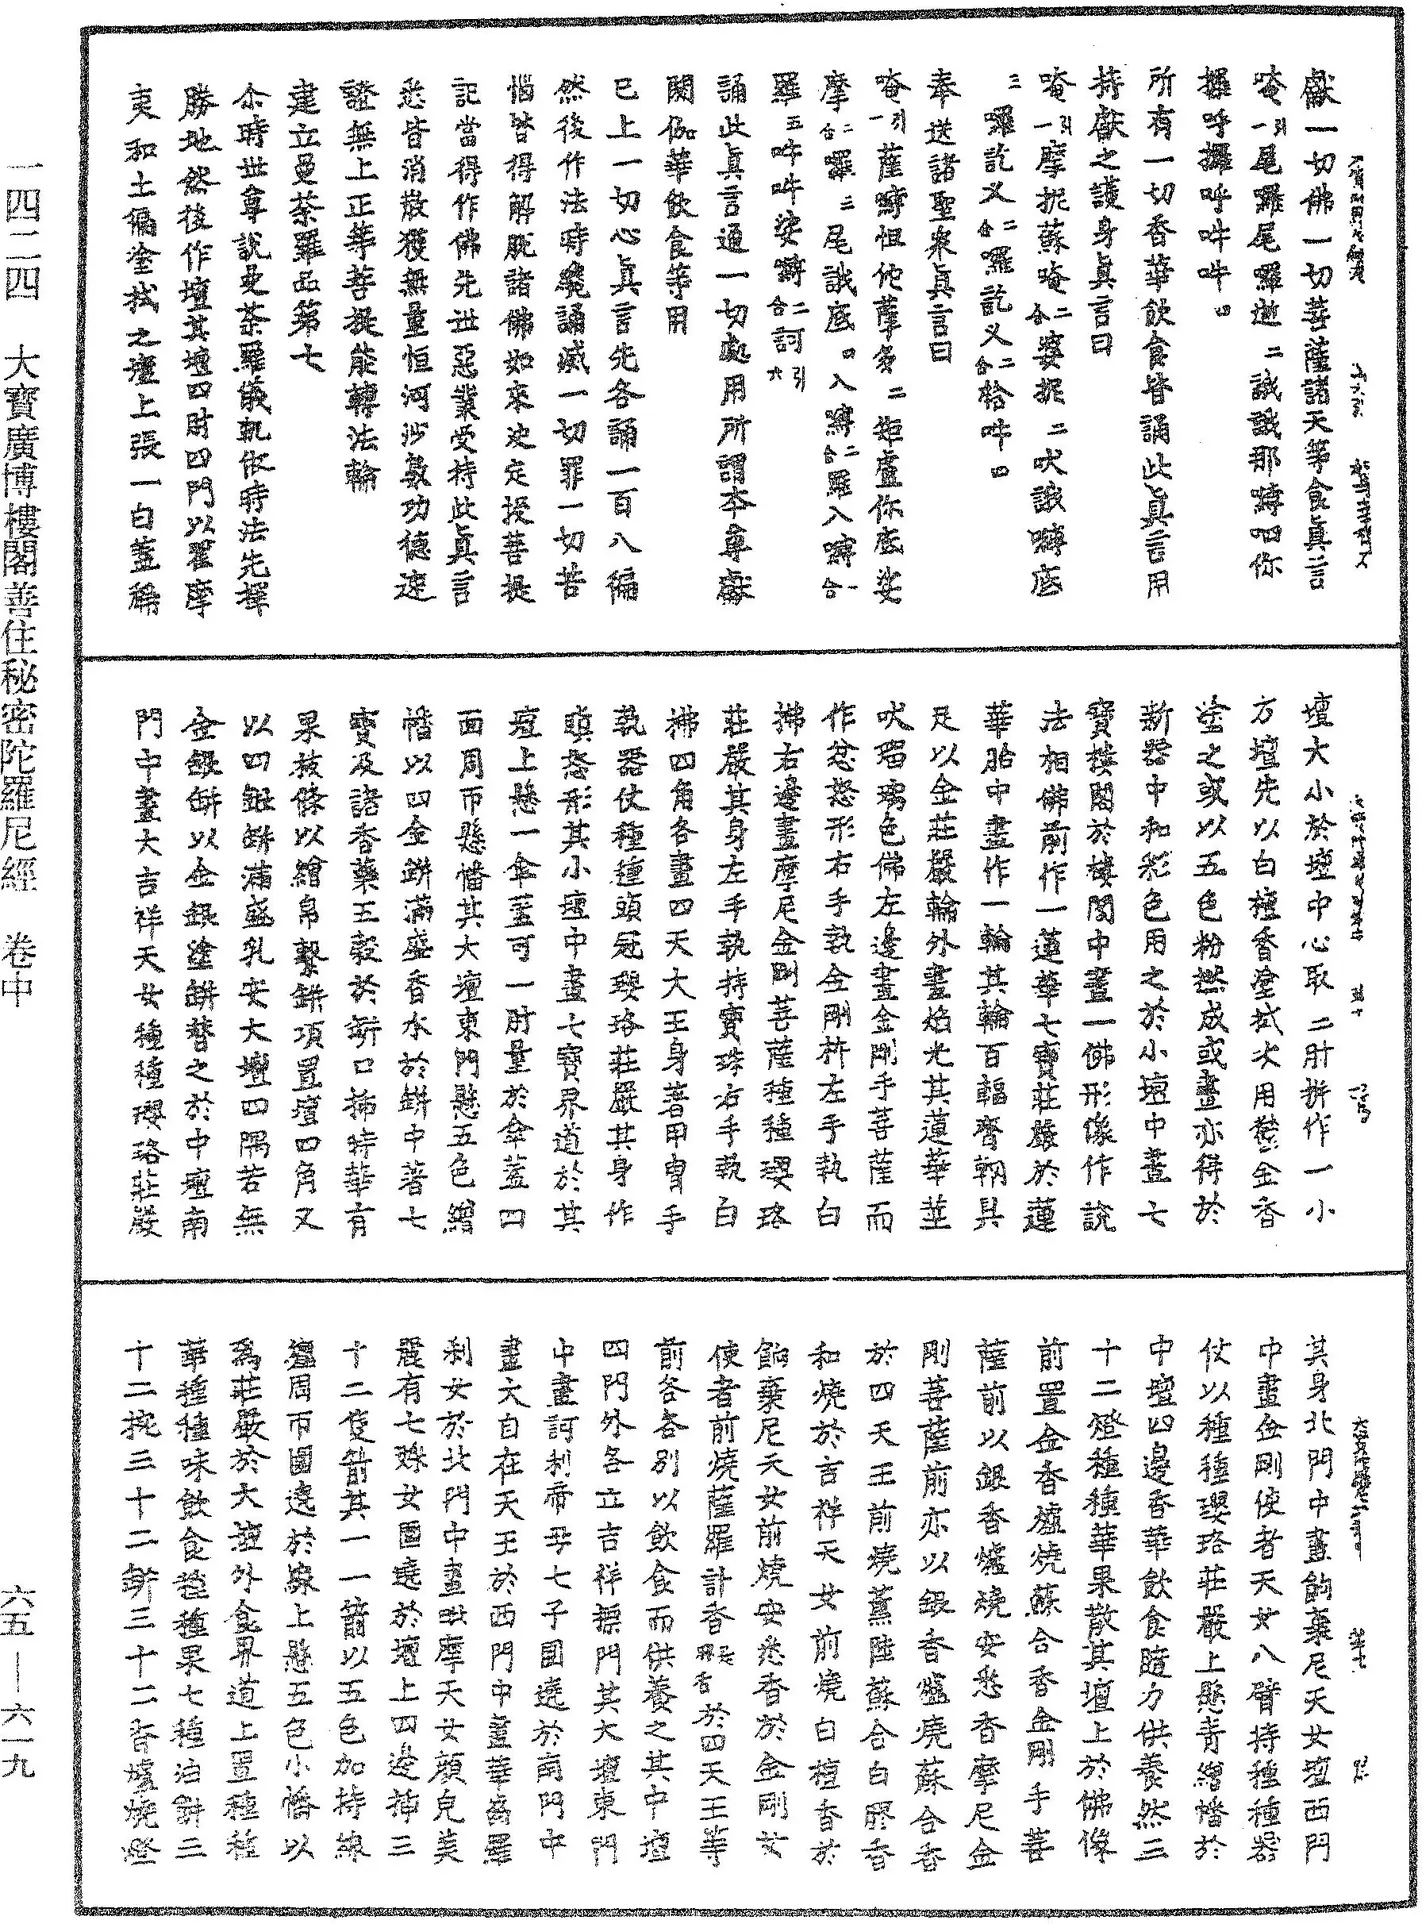 獻一切佛一切菩薩諸天等食真言
唵一引尾羅尾羅逝二誐誐那嚩呬你
攞呼攞呼吽吽四
所有一切香華飲食皆誦此真言用
持獻之護身真言曰
唵一引摩抳蘇唵二合婆抳二吠誐嚩底
三囉訖叉二合囉訖叉二合𤚥吽四
奉送諸聖衆真言曰
唵一引薩嚩怛他蘖多二矩盧你底娑
摩二合囉三尾誐底四入嚩二合羅入嚩二合
羅五吽吽娑嚩二合訶引六
誦此真言通一切處用所謂本尊獻
閼伽華飲食等用
已上一切心真言先各誦一百八徧
然後作法時纔誦滅一切罪一切苦
惱皆得解脫諸佛如來決定授菩提
記當得作佛先世惡業受持此真言
悉皆消散獲無量恒河沙數功德速
證無上正等菩提能轉法輪
建立曼荼羅品第七
尒時世尊說曼荼羅儀軌依時法先擇
勝地然後作壇其壇四肘四門以瞿摩
夷和土徧塗拭之壇上張一白蓋稱
壇大小於壇中心取二肘拼作一小
方壇先以白檀香塗拭次用鬱金香
塗之或以五色粉撚成或畫亦得於
新器中和彩色用之於小壇中畫七
寶樓閣於樓閣中畫一佛形像作說
法相佛前作一蓮華七寶莊嚴於蓮
華胎中畫作一輪其輪百輻齊輞具
足以金莊嚴輪外畫焰光其蓮華莖
吠瑠璃色佛左邊畫金剛手菩薩而
作忿怒形右手執金剛杵左手執白
拂右邊畫摩尼金剛菩薩種種瓔珞
莊嚴其身左手執持寶珠右手執白
拂四角各畫四天大王身著甲冑手
執器仗種種頭冠瓔珞莊嚴其身作
瞋怒形其小壇中畫七寶界道於其
壇上懸一傘蓋可一肘量於傘蓋四
面周帀懸幡其大壇東門懸五色繒
幡以四金缾滿盛香水於缾中著七
寶及諸香藥五穀於缾口插時華有
果枝條以繒帛繫缾項置壇四角又
以四銀缾滿盛乳安大壇四隅若無
金銀缾以金銀塗缾替之於中壇南
門中畫大吉祥天女種種瓔珞莊嚴
其身北門中畫餉棄尼天女壇西門
中畫金剛使者天女八臂持種種器
仗以種種瓔珞莊嚴上懸青繒幡於
中壇四邊香華飲食隨力供養然三
十二燈種種華果散其壇上於佛像
前置金香爐燒蘇合香金剛手菩
薩前以銀香爐燒安悉香摩尼金
剛菩薩前亦以銀香爐燒蘇合香
於四天王前燒薰陸蘇合白膠香
和燒於吉祥天女前燒白檀香於
餉棄尼天女前燒安悉香於金剛女
使者前燒薩羅計香於四天王等
前各各別以飲食而供養之其中壇
四門外各立吉祥摽門其大壇東門
中畫訶利帝母七子圍遶於南門中
畫大自在天王於西門中畫華齒羅
剎女於北門中畫毗摩天女顏皃美
麗有七婇女圍遶於壇上四邊插三
十二隻箭其一一箭以五色加持線
纏周帀圍遶於線上懸五色小幡以
為莊嚴於大壇外食界道上置種種
華種種味飲食種種果七種油餅三
十二椀三十二缾三十二香爐燒燈
一四二四　大寶廣博樓閣善住秘密陀羅尼經　卷中
六五—六一九